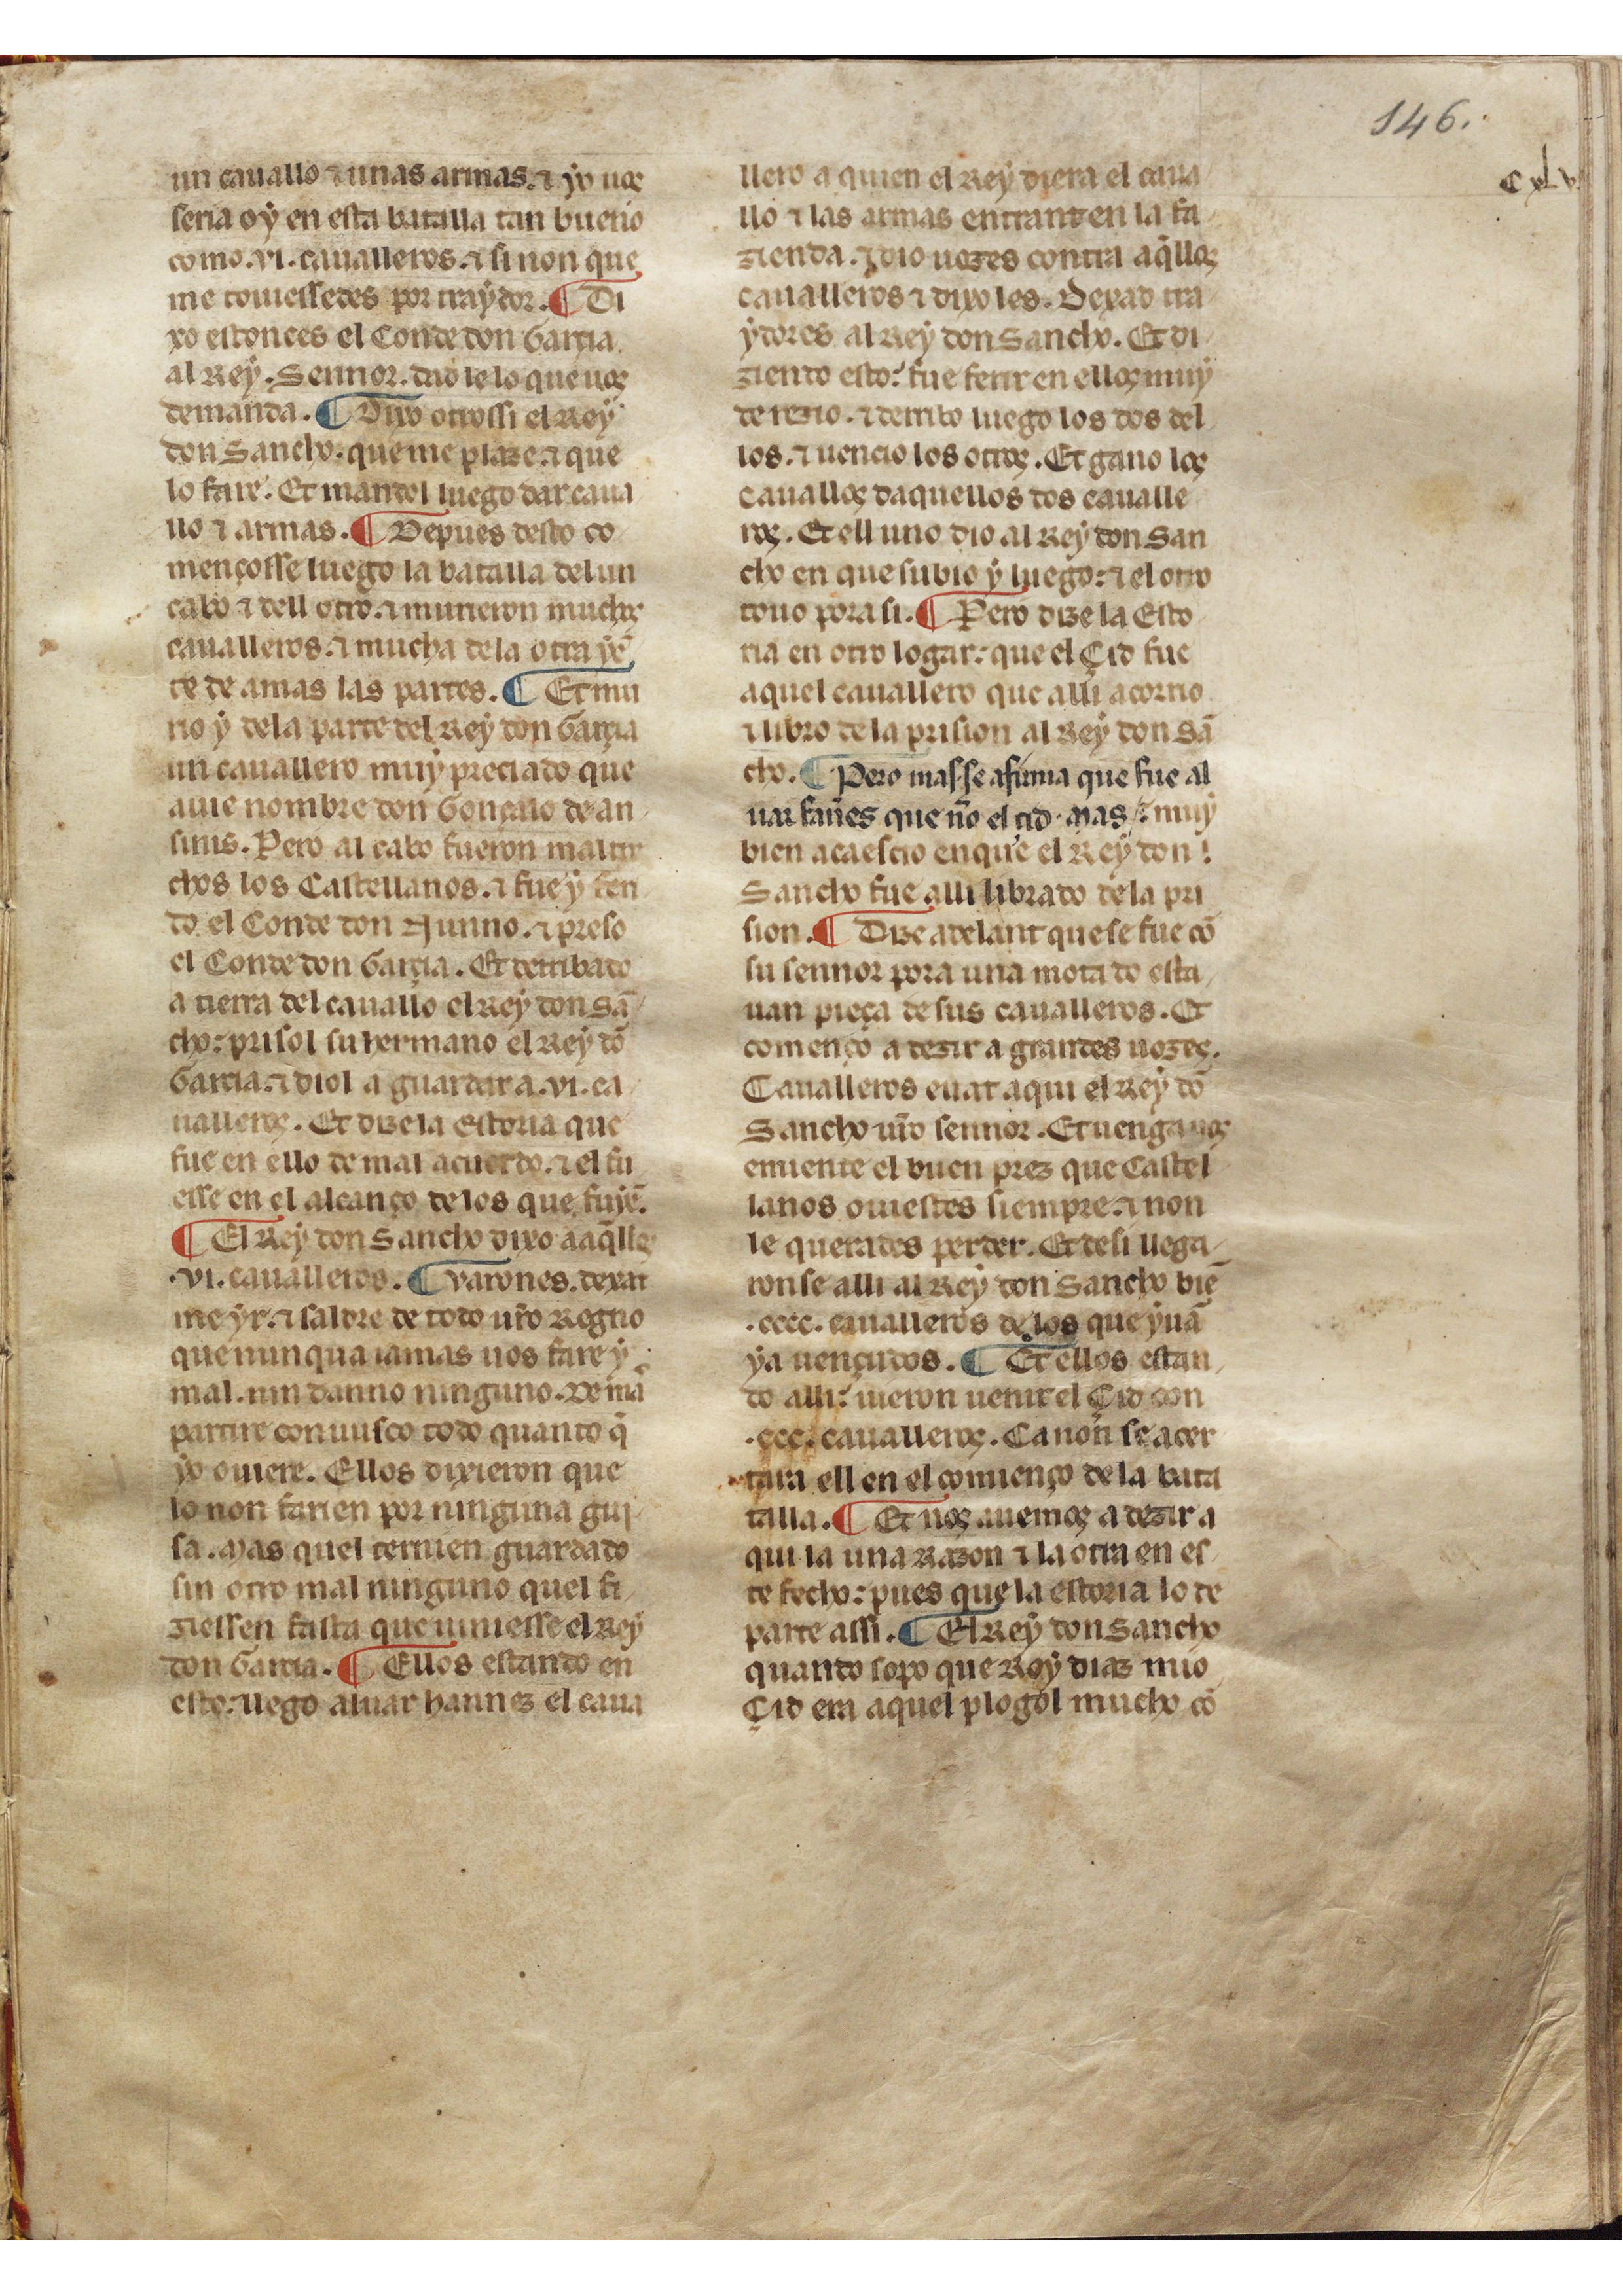 146.
Cxlv
un cauallo ⁊ unas armas. ⁊ yo uos
seria oy en esta batalla tan bueno
como .vi. caualleros. ⁊ si non que
me touiessedes por traydor. ¶ Di
xo estonces el Conde don Garçia
al Rey. Sennor. dad le lo que uos
demanda. ¶ Dixo otrossi el Rey
don Sancho. que me plaze. ⁊ que
lo fare. Et mandol luego dar caua
llo ⁊ armas. ¶ Depues desto co
mençosse luego la batalla del un
cabo ⁊ dell otro. ⁊ murieron muchos
caualleros. ⁊ mucha de la otra yẽ
te de amas las partes. ¶ Et mu
rio y de la parte del Rey don Garçia
un cauallero muy preciado que
auie nombre don Gonçalo de an
sinis. Pero al cabo fueron maltre
chos los Castellanos. ⁊ fue y feri
do el Conde don Nunno. ⁊ preso
el Conde don Garçia. Et derribado
a tierra del cauallo el Rey don Sã
cho: prisol su hermano el Rey dõ
Garcia. ⁊ diol a guardar a .vi. ca
ualleros. Et dize la estoria que
fue en ello de mal acuerdo. ⁊ el fu
esse en el alcanço de los que fuyẽ.
¶ El Rey don Sancho dixo a aq̃llos
.vi. caualleros. ¶ Varones. dexat
me yr. ⁊ saldre de todo ur̃o Regno
que nunqua iamas uos fare y
mal. nin danno ninguno. De mã
partire conuusco todo quanto q̃
yo ouiere. Ellos dixieron que
lo non farien por ninguna gui
sa. Mas quel ternien guardado
sin otro mal ninguno quel fi
ziessen fasta que uiniesse el Rey
don Garcia. ¶ Ellos estando en
esto: llego aluar hannez el caua
llero a quien el Rey diera el caua
llo ⁊ las armas entrant en la fa
zienda. ⁊ dio uozes contra aq̃llos
caualleros ⁊ dixo les. Dexad tra
ydores al Rey don Sancho. Et di
ziendo esto: fue ferir en ellos muy
de rezio. ⁊ derribo luego los dos del
los. ⁊ uencio los otros. Et gano los
cauallos daquellos dos caualle
ros. Et ell uno dio al Rey don San
cho en que subio y luego: ⁊ el otro
touo pora si. ¶ Pero dize la Esto
ria en otro logar: que el Çid fue
aquel cauallero que alli acorrio
⁊ libro de la prision al Rey don Sã
cho. ¶ Pero mas se afirma que fue al
uar fañes que ño el cid. mas /: muy
bien acaescio en que el Rey don !
Sancho fue alli librado de la pri
sion. ¶ Dize adelant que se fue cõ
su sennor pora una mota do esta
uan pieça de sus caualleros. Et
començo a dezir a grandes uozes.
Caualleros euat aqui el Rey dõ
Sancho ur̃o sennor. Et uenga uos
emiente el buen prez que Castel
lanos ouiestes siempre. ⁊ non
le querades perder. Et desi llega
ronse alli al Rey don Sancho biẽ
.cccc. caualleros de los que yuã
ya uençudos. ¶ Et ellos estan
do alli: uieron uenir el Çid con
.ccc. caualleros. Ca non se acer
tara ell en el comienço de la bata
talla. ¶ Et nos auemos a dezir a
qui la una Razon ⁊ la otra en es
te fecho: pues que la estoria lo de
parte assi. ¶ El Rey don Sancho
quando sopo que Roy diaz mio
Çid era aquel plogol mucho cõ